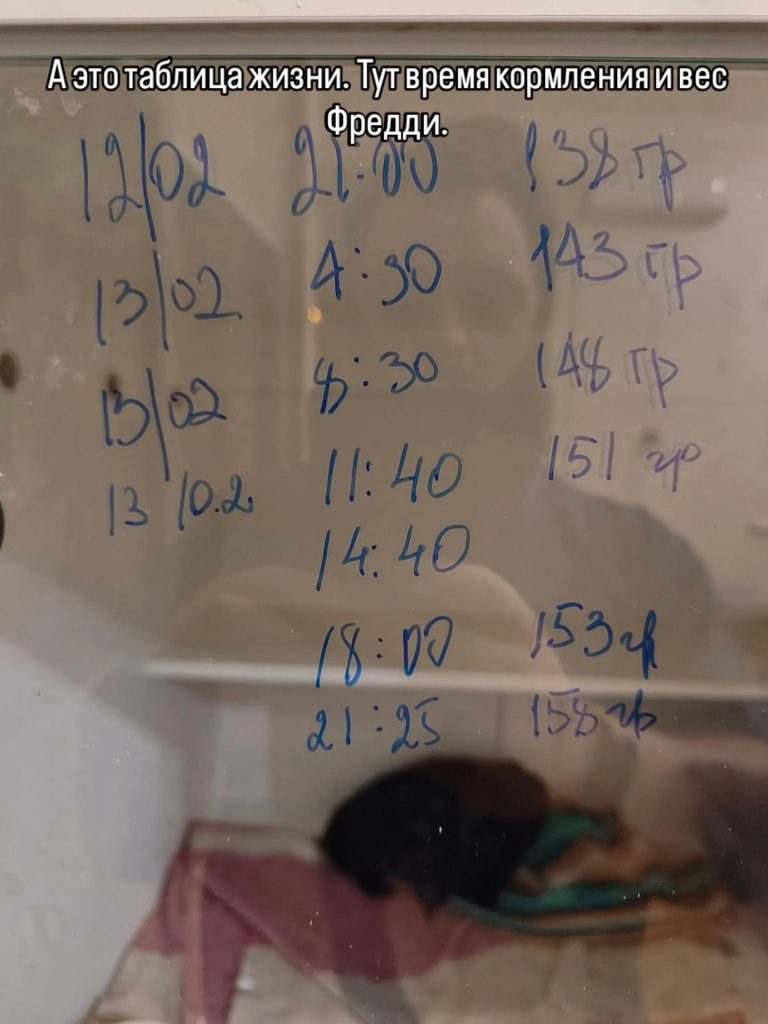 А это таблица жизни. Тут время кормления и вес
Фредди.
12/02 21:00 138 гр
13/02 4:30 143 гр
13/02 8:30 148 гр
13/0.2 11:40 151 гр
14:40
18:00 153 гр
21:25 158 гр